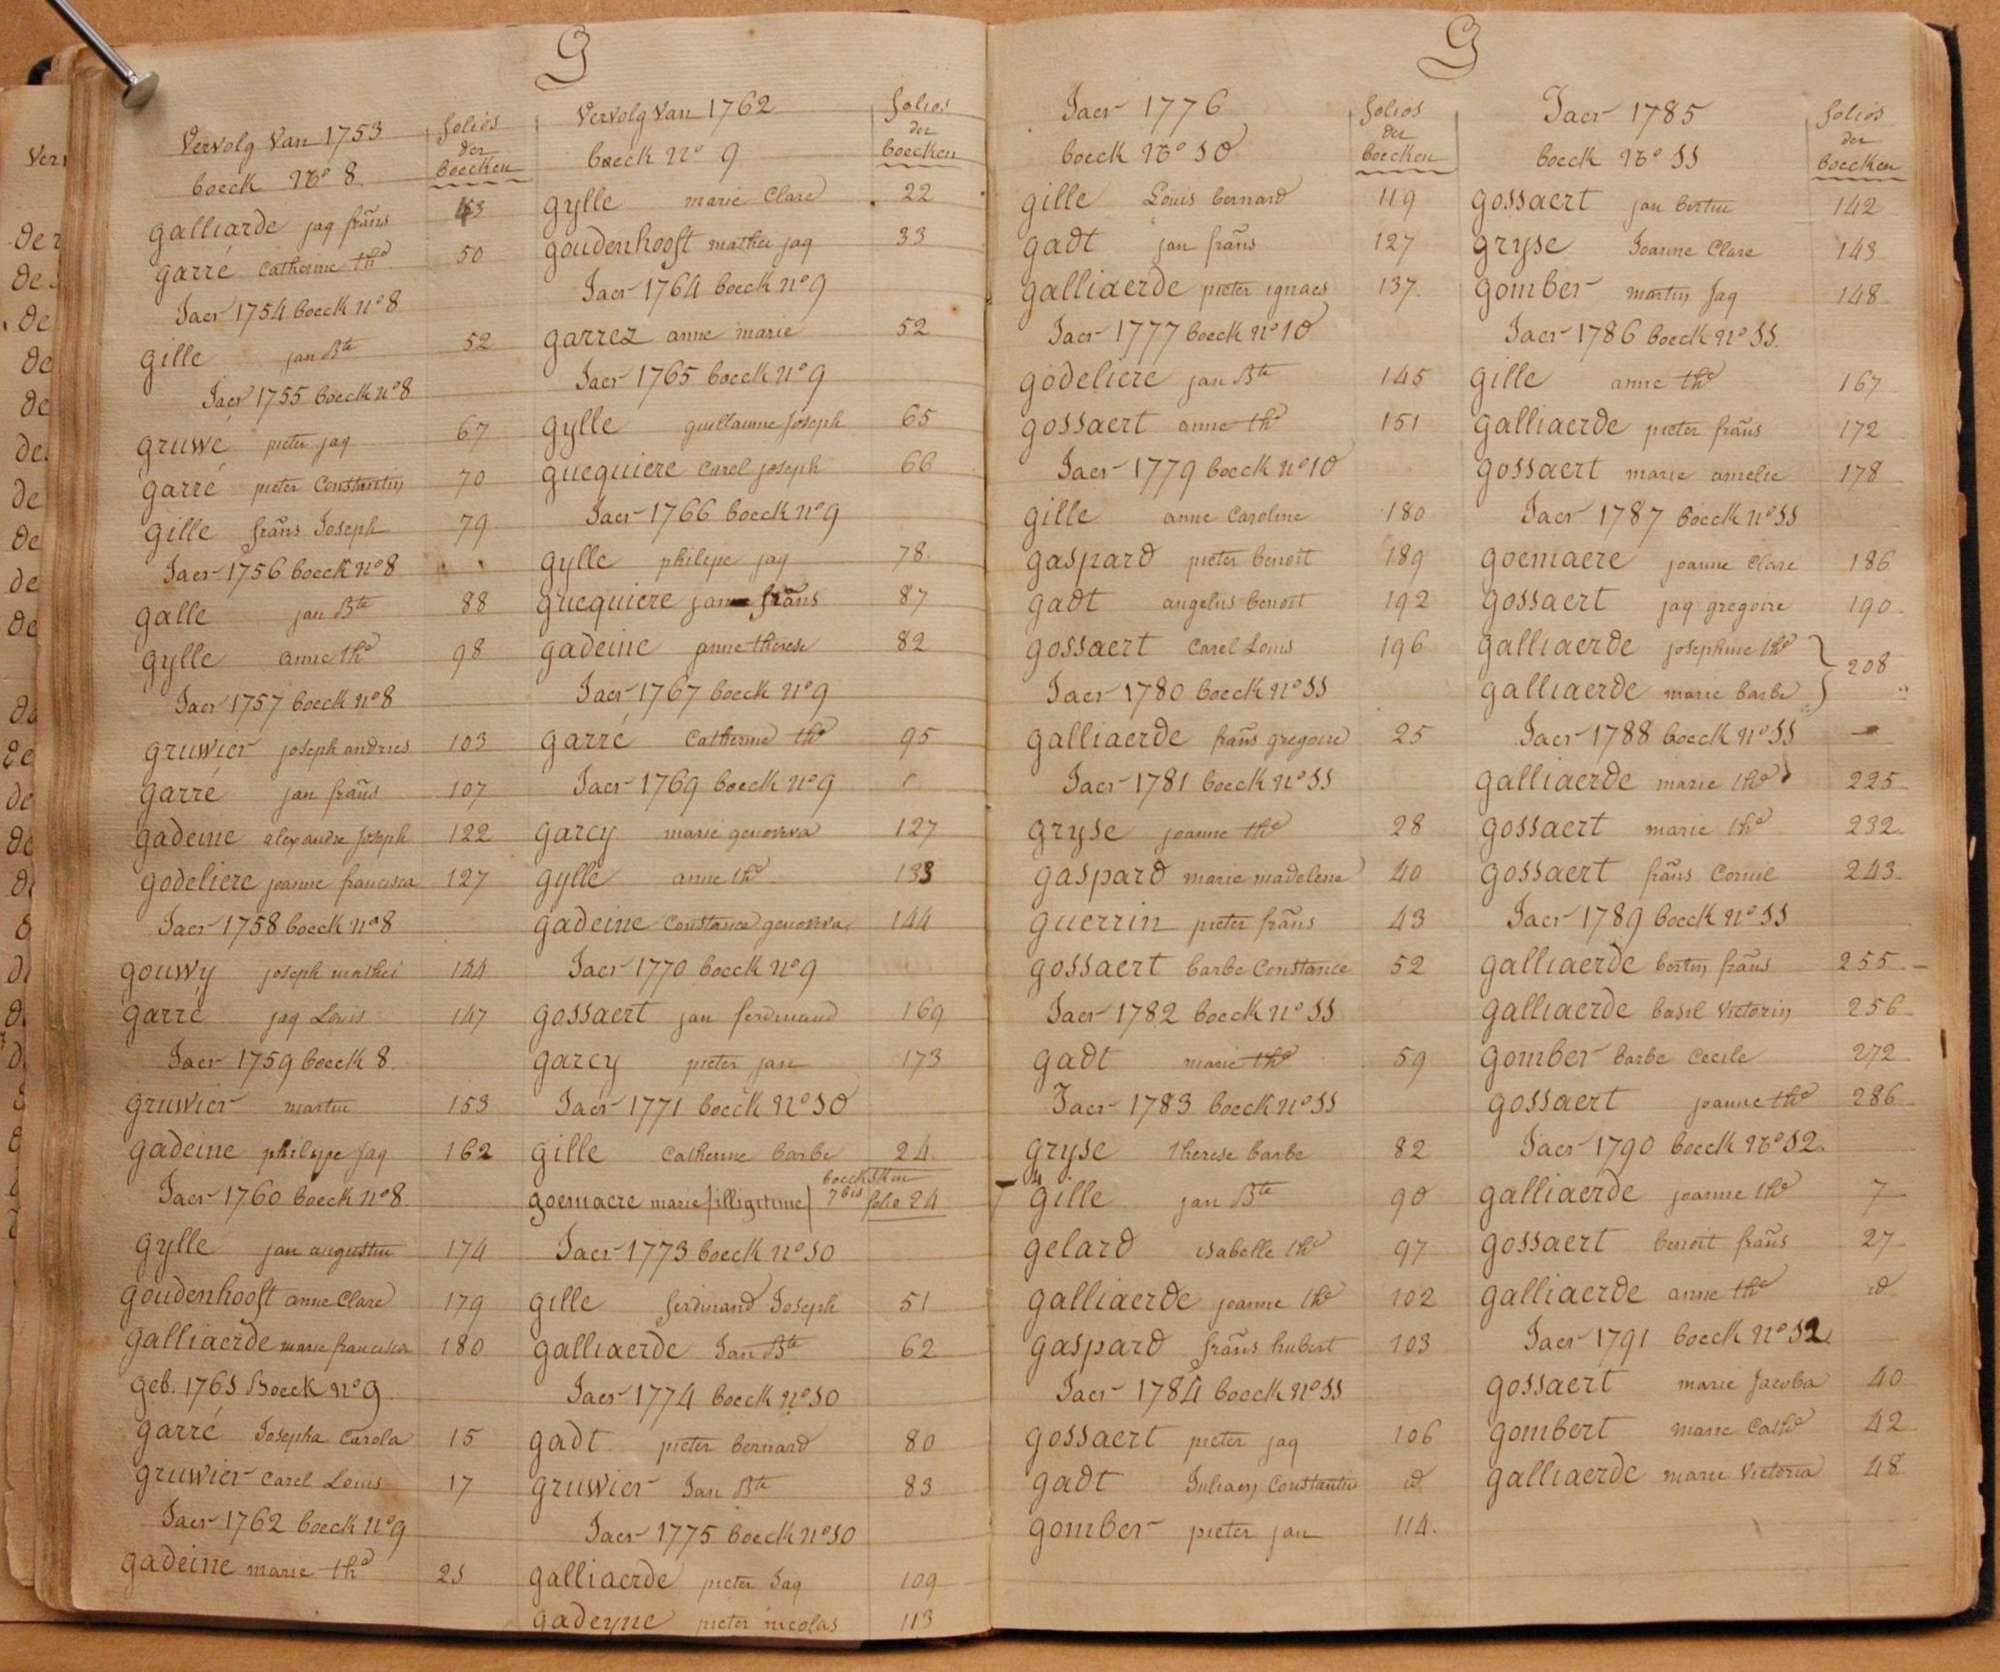 G
Vervolg Van 1753
folios der boecken
boeck No 8
galliarde jaq frans 43
garré Catherine the 50
Jaer 1754 boeck no 8
gille jan Bte 52
Jaer 1755 boeck no 8
gruwé pieter jaq 67
garré pieter Constantin 70
gille frans Joseph 79
Jaer 1756 boeck no 8
galle jan Bte 88
gylle anne the 98
Jaer 1757 boeck no 8
gruwier joseph andries 103
garré jan frans 107
gadeine alexandre Joseph 122
godeliere joanne francisca 127
Jaer 1758 boeck no 8
gouwy joseph mathei 144
garré jaq Louis 147
Jaer 1759 boeck 8
gruwier martin 153
gadeine philippe Jaq 162
Jaer 1760 boeck no 8
gylle jan augustin 174
goudenhooft anne Clare 179
galliaerde marie francisca 180
geb. 1761 Boeck no 9
garré Josepha Carola 15
gruwier Carel Louis 17
Jaer 1762 boeck no 9
gadeine marie the 21
Vervolg Van 1762
folios der boecken
boeck No 9
gylle marie Clare 22
goudenhooft mathei jaq 33
Jaer 1764 boeck no 9
garrez anne marie 52
Jaer 1765 boeck no 9
gylle guillaume Joseph 65
guequiere Carel joseph 66
Jaer 1766 boeck no 9
gylle philipe jaq 78
guequiere jan frans 87
gadeine anne therese 82
Jaer 1767 boeck no 9
garré Catherine the 95
Jaer 1769 boeck no 9
garcy marie genoveva 127
gylle anne the 133
gadeine Constance genoveva 144
Jaer 1770 boeck no 9
gossaert jan ferdinand 169
garcy pieter jan 173
Jaer 1771 boeck No 10
gille Catherine barbe 24
goemaere marie /illigitime/ boecksken 7bis folio 24
Jaer 1773 boeck no 10
gille ferdinand Joseph 51
galliaerde Jan Bte 62
Jaer 1774 boeck no 10
gadt pieter bernard 80
gruwier Jan Bte 83
Jaer 1775 boeck no 10
galliaerde pieter Jaq 109
gadeyne pieter nicolas 113
G
Jaer 1776
folios der boecken
boeck No 10
gille Louis bernard 119
gadt jan frans 127
galliaerde pieter ignaes 137
Jaer 1777 boeck no 10
godeliere jan Bte 145
gossaert anne the 151
Jaer 1779 boeck no 10
gille anne Caroline 180
gaspard pieter benoit 189
gadt angelus benoit 192
gossaert Carel Louis 196
Jaer 1780 boeck no 11
galliaerde frans gregoire 25
Jaer 1781 boeck no 11
gryse joanne the 28
gaspard marie madelene 40
guerrin pieter frans 43
gossaert barbe Constance 52
Jaer 1782 boeck no 11
gadt marie the 59
Jaer 1783 boeck no 11
gryse therese barbe 82
gille jan Bte 90
gelard isabelle the 97
galliaerde joanne the 102
gaspard frans hubert 103
Jaer 1784 boeck no 11
gossaert pieter jaq 106
gadt Juliaen Constantin id
gomber pieter jan 114
Jaer 1785
folios der boecken
boeck No 11
gossaert jan bertin 142
gryse Joanne Clare 143
gomber martin Jaq 148
Jaer 1786 boeck no 11
gille anne the 167
galliaerde pieter frans 172
gossaert marie amelie 178
Jaer 1787 boeck no 11
goemaere joanne Clare 186
gossaert jaq gregoire 190
galliaerde josephine the } 208
galliaerde marie barbe }
Jaer 1788 boeck no 11
galliaerde marie the 225
gossaert marie the 232
gossaert frans Cornil 243
Jaer 1789 boeck no 11
galliaerde bertin frans 255
galliaerde basil Victorin 256
gomber barbe Cecile 272
gossaert joanne the 286
Jaer 1790 boeck No 12
galliaerde joanne the 7
gossaert benoit frans 27
galliaerde anne the id
Jaer 1791 boeck no 12
gossaert marie Jacoba 40
gombert marie Cathe 42
galliaerde marie Victoria 48